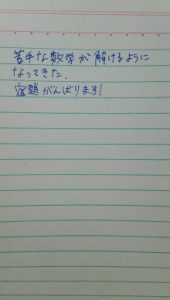 苦手な数学が解けるように
なってきた.
宿題がんばります!